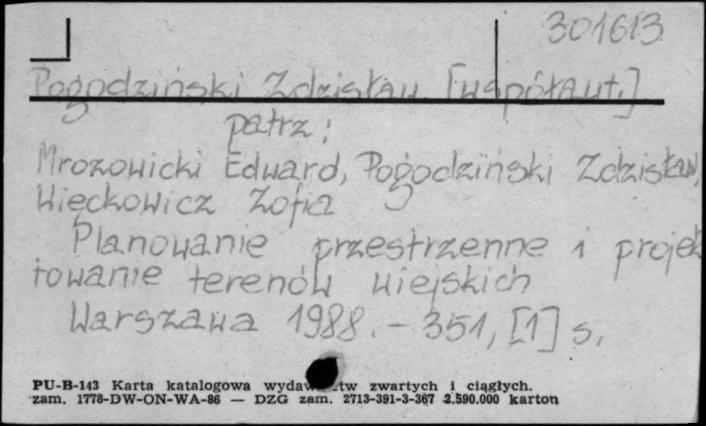 301613
Pogodziński Zdzisław [współaut.]
patrz:
Mrozowicki Edward, Pogodziński Zdzisław,
Więckowicz Zofia
Planowanie przestrzenne i projek
towanie terenów wiejskich
Warszawa 1988. - 351, [1] s.
PU-B-143 Karta katalogowa zwartych i ciągłych.
zam. 1778-DW-ON-WA-86 — DZG zam. 2713-391-3-367 2.590.000 karton